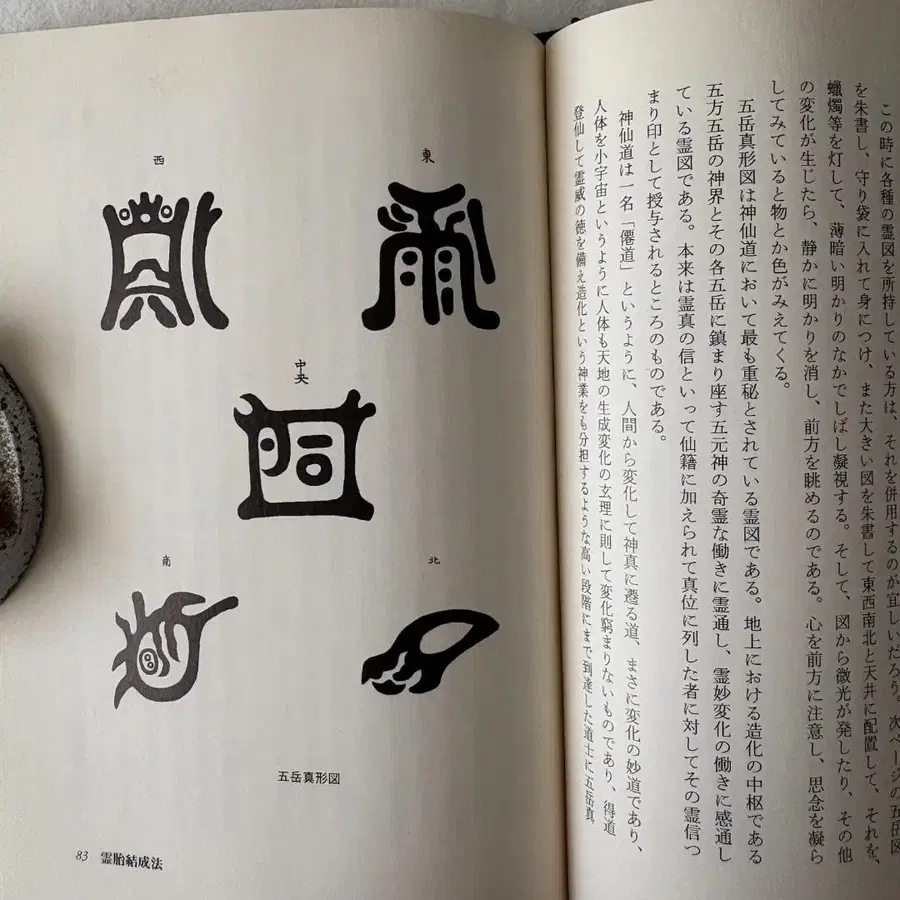 この時に各種の霊図を所持している方は、それを併用するのが宜しいだろう。次ページの五岳図
を朱書し、守り袋に入れて身につけ、また大きい図を朱書して東西南北と天井に配置して、それを、
蠟燭等を灯して、薄暗い明かりのなかでしばし凝視する。そして、図から微光が発したり、その他
の変化が生じたら、静かに明かりを消し、前方を眺めるのである。心を前方に注意し、思念を凝ら
してみていると物とか色がみえてくる。
五岳真形図は神仙道において最も重秘とされている霊図である。地上における造化の中枢である
五方五岳の神界とその各五岳に鎮まり座す五元神の奇霊な働きに霊通し、霊妙変化の働きに感通し
ている霊図である。本来は霊真の信といって仙籍に加えられて真位に列した者に対してその霊信つ
まり印として授与されるところのものである。
神仙道は一名「僊道」というように、人間から変化して神真に遷る道、まさに変化の妙道であり、
人体を小宇宙というように人体も天地の生成変化の玄理に則して変化窮まりないものであり、得道
登仙して霊威の徳を備え造化という神業をも分担するような高い段階にまで到達した道士に五岳真
東
西
中央
北
南
五岳真形図
83 霊胎結成法